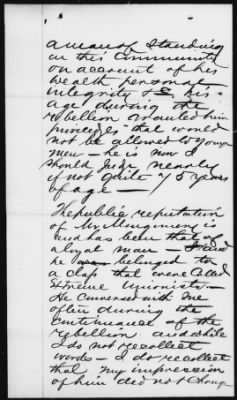 a man of standing
in this community
on account of his
wealth personal
integrity &c his
age during the
rebellion him
privileges that would
not be allowed to younger
men - he is now I
should judge nearly
if not quite 75 years
of age -
The public reputation
of Mr Montgomery
was has been that of
a loyal man
he was belonged to
a class that were called
Extreme Unionists -
He conversed with me
often during the
continuance of the
rebellion and while
I do not recollect
words - I do recollect
that my impression
of him did not change